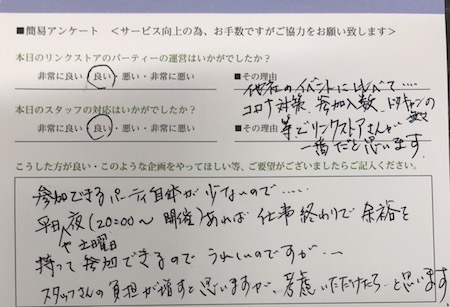 ■簡易アンケート ＜サービス向上の為、お手数ですがご協力をお願い致します＞
本日のリンクストアのパーティーの運営はいかがでしたか？
非常に良い・良い・悪い・非常に悪い
■その理由
他社のイベントにくらべて....
コロナ対策、参加人数、ドタキャンの数
等でリンクストアさんが
一番だと思います。
本日のスタッフの対応はいかがでしたか？
非常に良い・良い・悪い・非常に悪い
■その理由
こうした方が良い・このような企画をやってほしい等、ご要望がございましたらご記入ください。
参加できるパーティ自体が少ないので.....
平日夜(20:00〜 開催)あれば 仕事終わりで 余裕を
や土曜日
持って参加できるので うれしいのですが...
スタッフさんの負担が増すと思いますが、考慮いただけたら...と思います